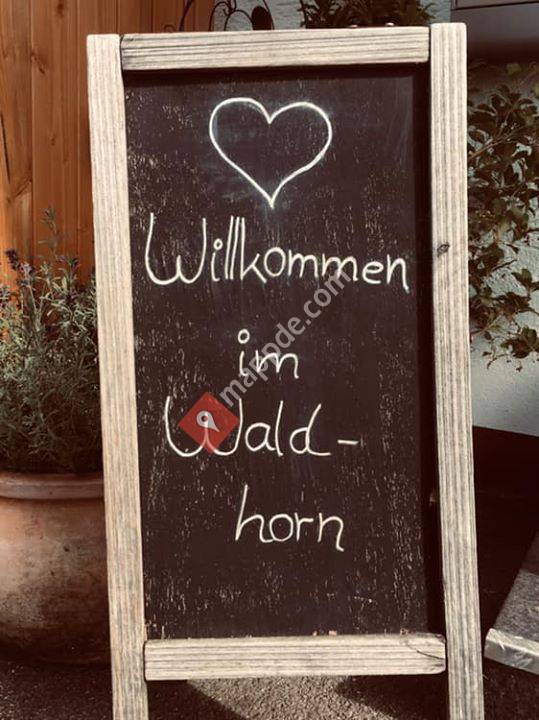 Willkommen
im
Wald-
horn
mapode.com